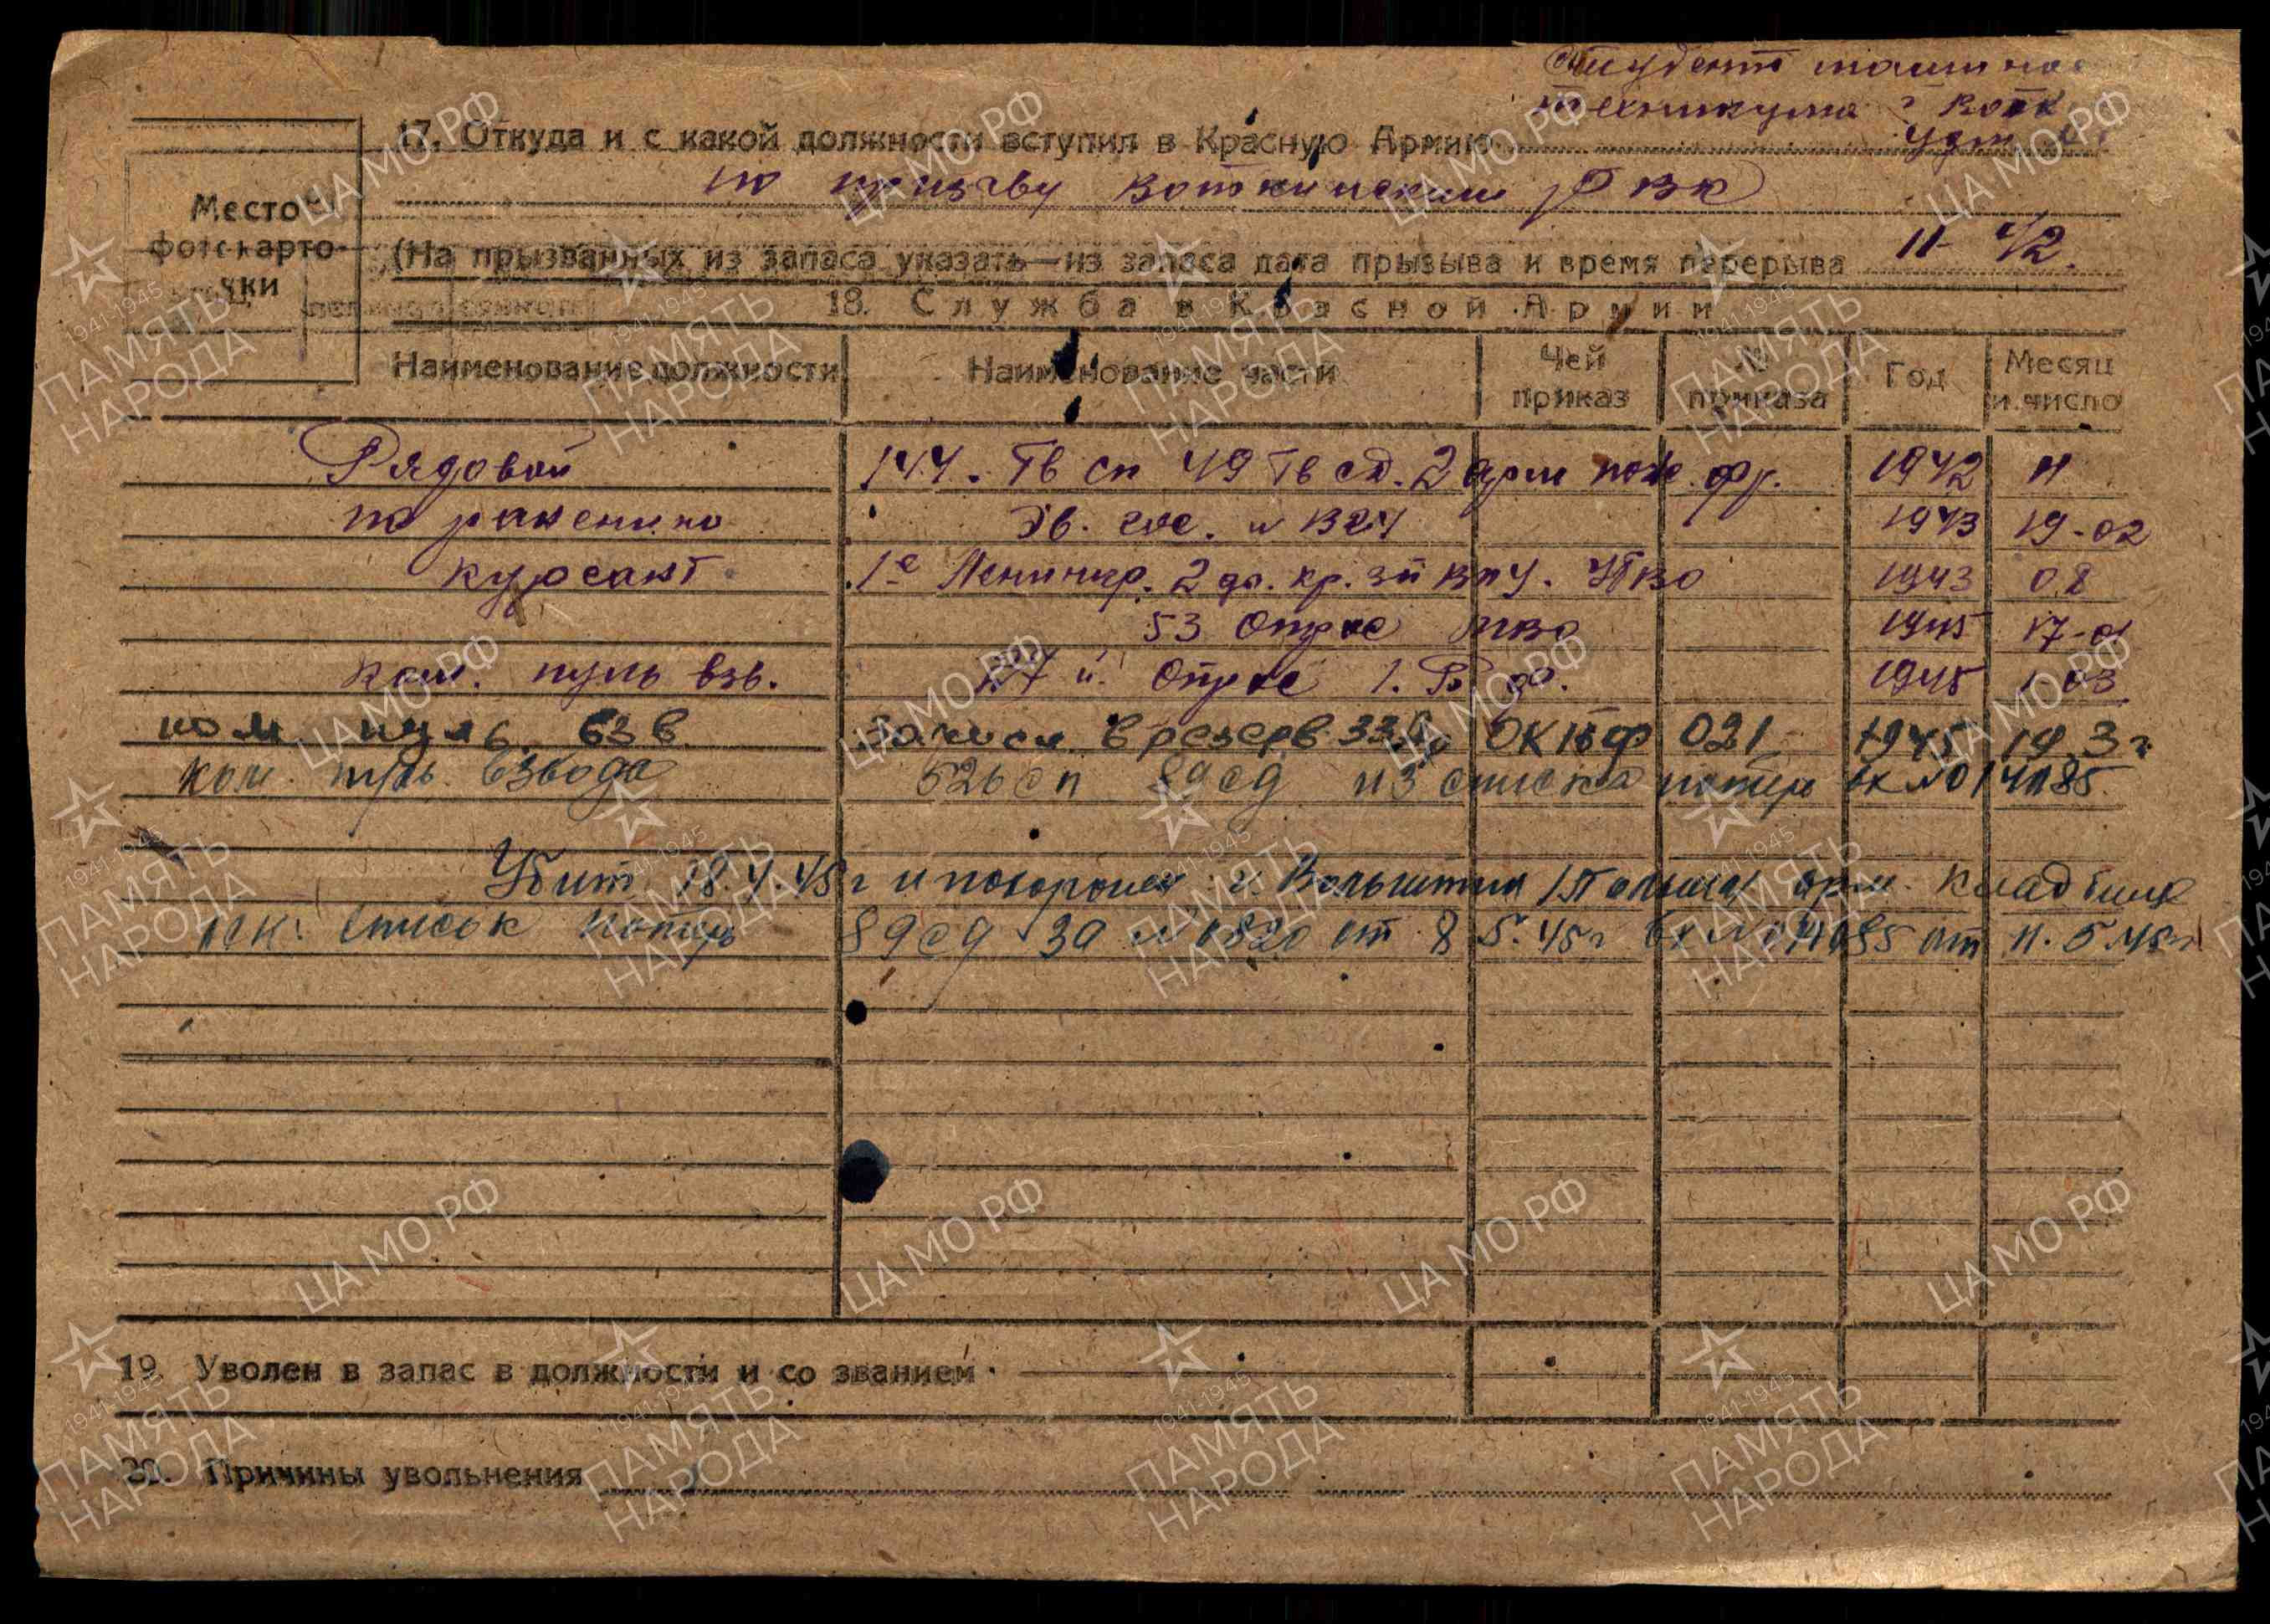 студент машино
техникума г Вотк
17. Откуда и с какой должности вступил в Красную Армию
Удм.
по призыву Воткинским РВК
Место
фотокарто-
чки
(На прызванных из запаса указать—из запаса дата прызыва и время перерыва 11 42.
18. Служба в Красной Армии
Наименование должности Наименование части Чей приказ № приказа Год Месяц и число
Рядовой 144. Гв сп 49 Гв сд. 2 арм юж. фр. 1942 11
по ранению Эв. гос. 1943 19-02
курсант 1е Ленингр. 2 кр. зн ВПУ. УРВО 1943 08
53 Отрос МВО 1945 17-01
ком. пуль взв. 27й Отрос 1. Б ф. 1945 1 03
ком пуль. взв. Зачисл. в резерв 33А ОК 1бф 021 1945 19.3 г
ком. пуль. взвода 526 сп 89 сд из списка потерь вх №014185.
Убит 18.4.45 г и похоронен г. Вольштин /Польша/ арм. кладбище
осн: список потерь 89 сд за №0820 от 8 5.45 г вх №014185 от 11.5.45 г
19. Уволен в запас в должности и со званием
20. Причины увольнения
ЦА МО РФ
1941-1945
ПАМЯТЬ
НАРОДА